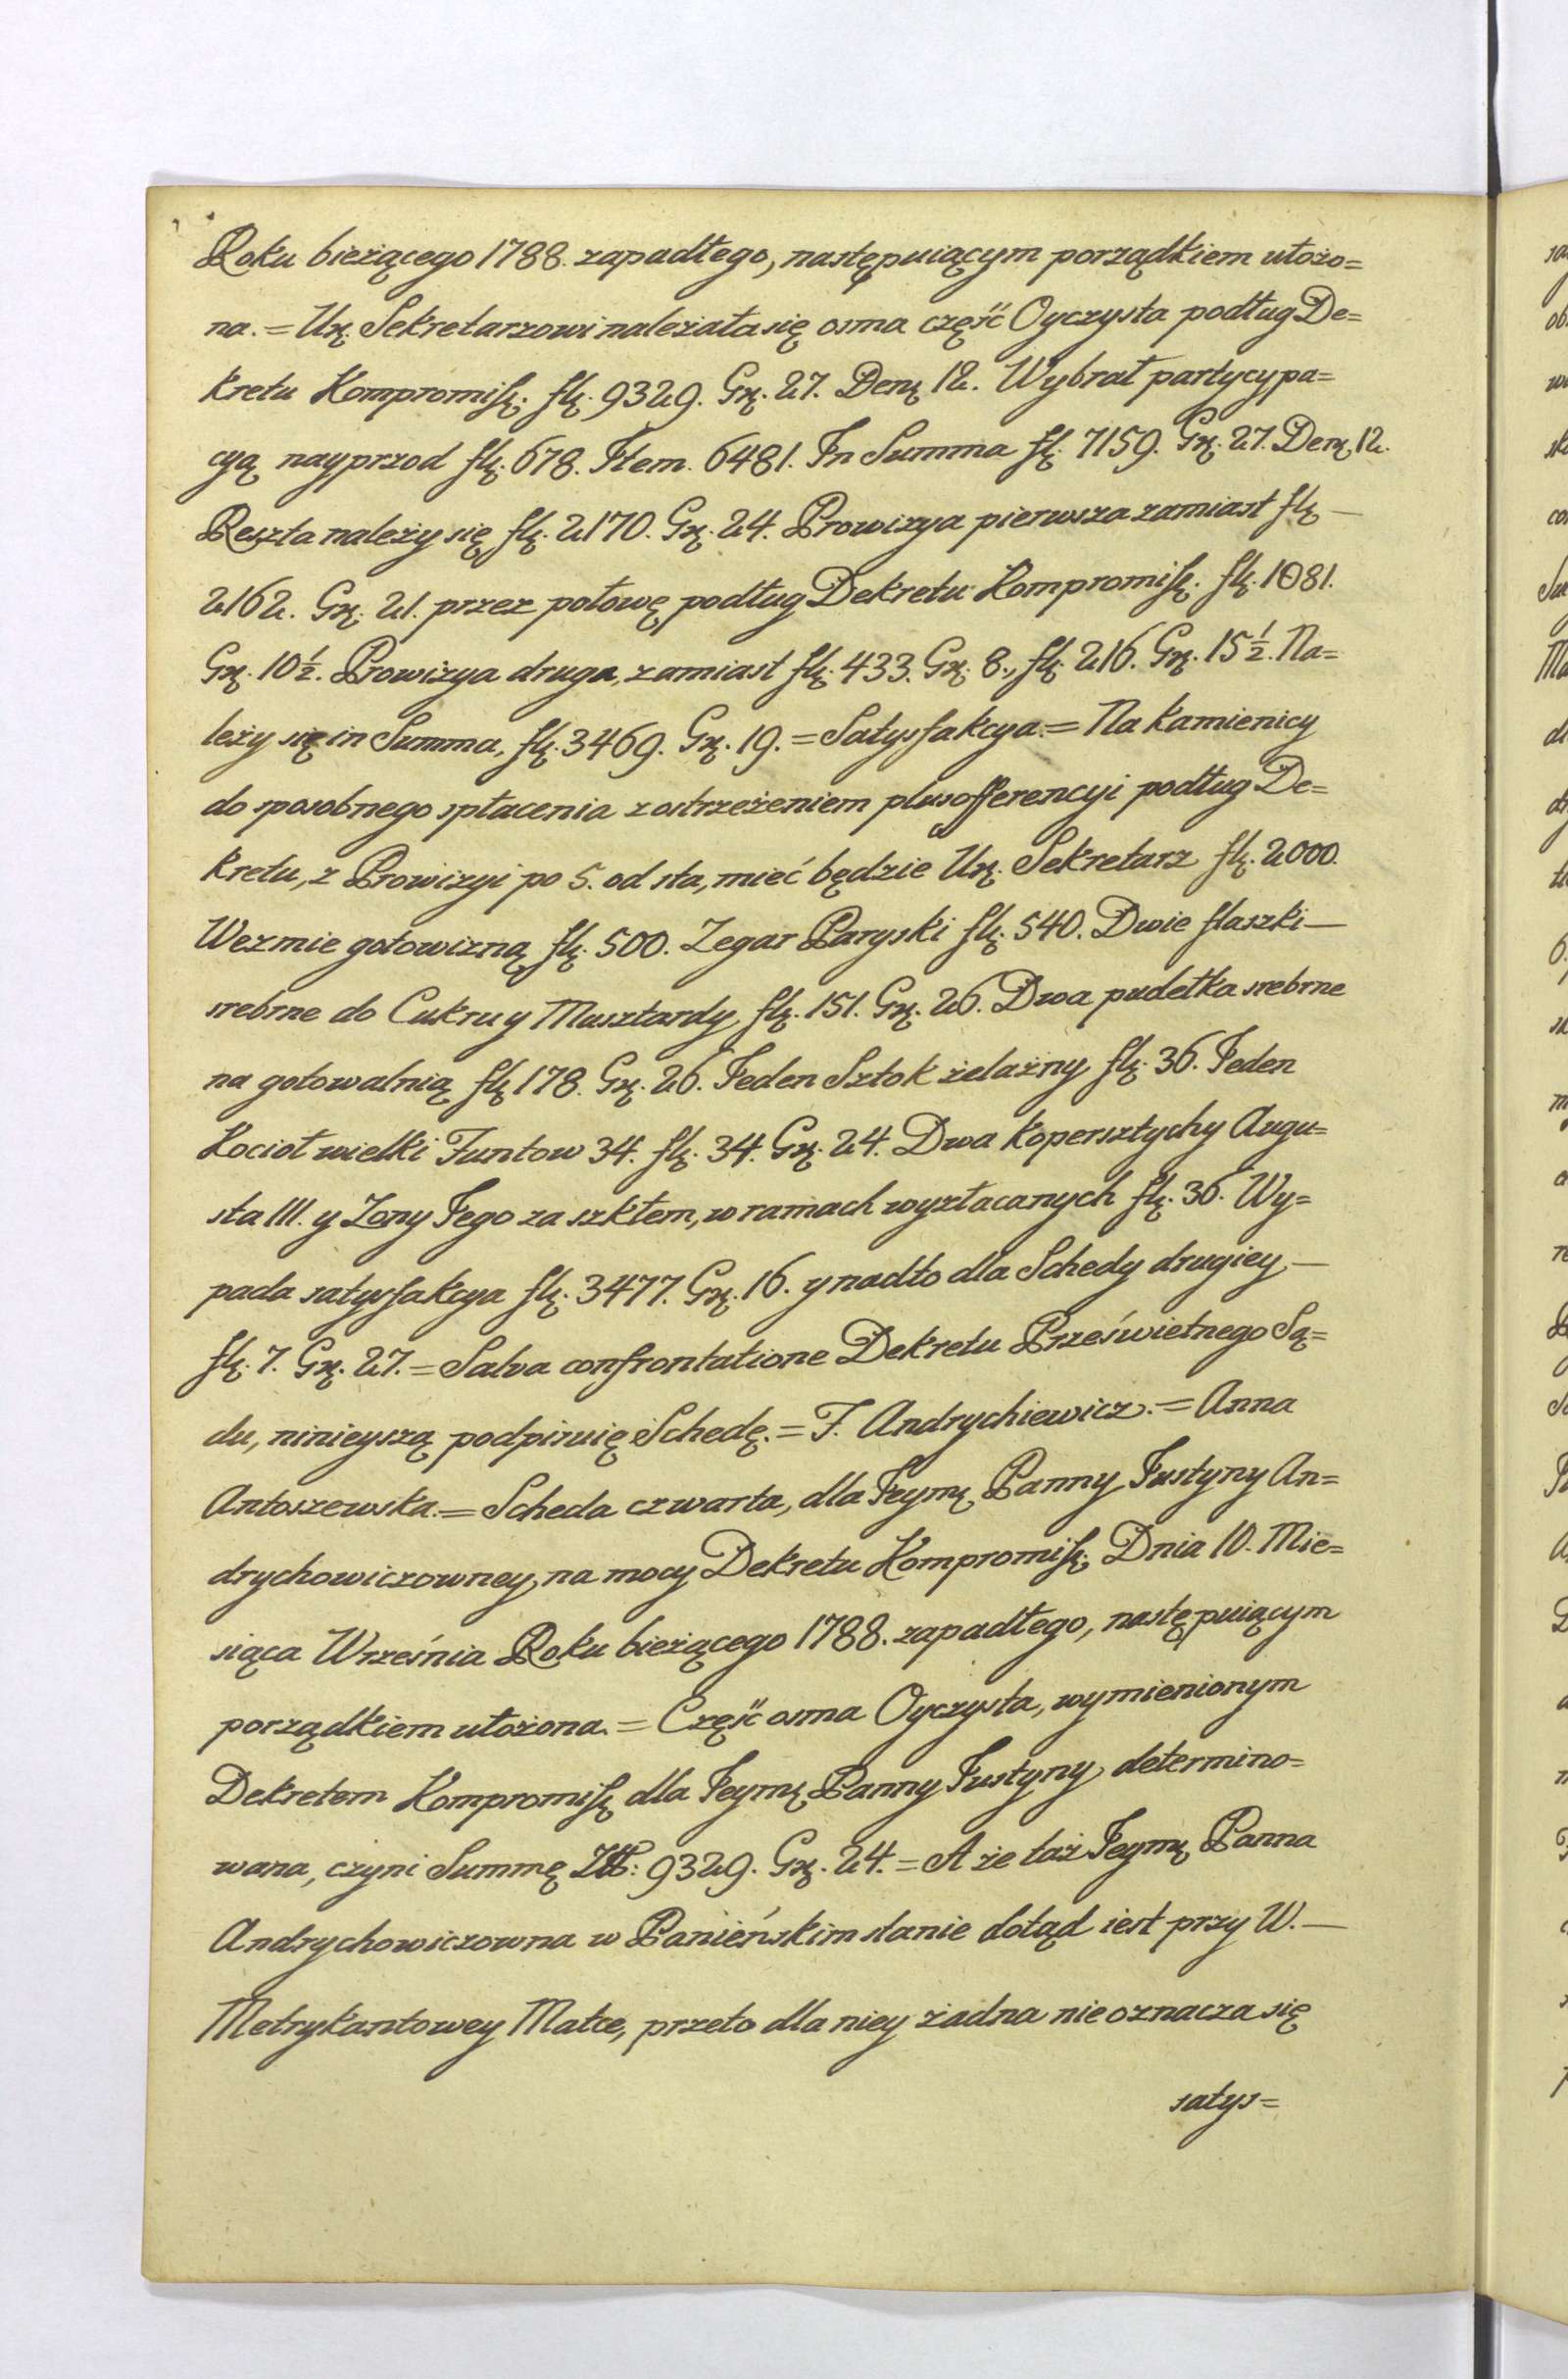 Roku bieżącego 1788. zapadłego, następuiącym porządkiem ułożo=
na. = Ur. Sekretarzowi należała się osma część Oyczysta podług De=
kretu Kompromiss. fl. 9329. Gr. 27. Den. 12. Wybrał partycypa=
cyą nayprzod fl. 678. Item. 6481. In Summa fl. 7159. Gr. 27. Den. 12.
Reszta należy się fl. 2170. Gr. 24. Prowizya pierwsza zamiast fl. —
2162. Gr. 21. przez połowę podług Dekretu Kompromiss. fl. 1081.
Gr. 10½. Prowizya druga, zamiast fl. 433. Gr. 8., fl. 216. Gr. 15½. Na=
leży się in Summa, fl. 3469. Gr. 19. = Satysfakcya. = Na kamienicy
do sposobnego spłacenia z ostrzeżeniem plusofferencyi podług De=
kretu, z Prowizyi po 5. od sta, mieć będzie Ur. Sekretarz fl. 2000.
Wezmie gotowizną fl. 500. Zegar Paryski fl. 540. Dwie flaszki —
srebrne do Cukru y Musztardy fl. 151. Gr. 26. Dwa pudełka srebrne
na gotowalnią fl. 178. Gr. 26. Jeden Sztok żelazny fl. 36. Jeden
Kocioł wielki Funtow 34. fl. 34. Gr. 24. Dwa kopersztychy Augu=
sta III. y Zony Jego za szkłem, w ramach wyzłacanych fl. 36. Wy=
pada satysfakcya fl. 3477. Gr. 16. y nadto dla Schedy drugiey —
fl. 7. Gr. 27. = Salva confrontatione Dekretu Prześwietnego Są=
du, ninieyszą podpisuię Schedę. = J. Andrychiewicz. = Anna
Antoszewska. = Scheda czwarta, dla Jeym. Panny Justyny An=
drychowiczowney, na mocy Dekretu Kompromiss. Dnia 10. Mie=
siąca Września Roku bieżącego 1788. zapadłego, następuiącym
porządkiem ułożona. = Część osma Oyczysta, wymienionym
Dekretem Kompromiss. dla Jeym. Panny Justyny determino=
wana, czyni Summę Złł: 9329. Gr. 24. = A że taż Jeym. Panna
Andrychowiczowna w Panieńskim stanie dotąd iest przy W. —
Metrykantowey Matce, przeto dla niey żadna nie oznacza się
satys=